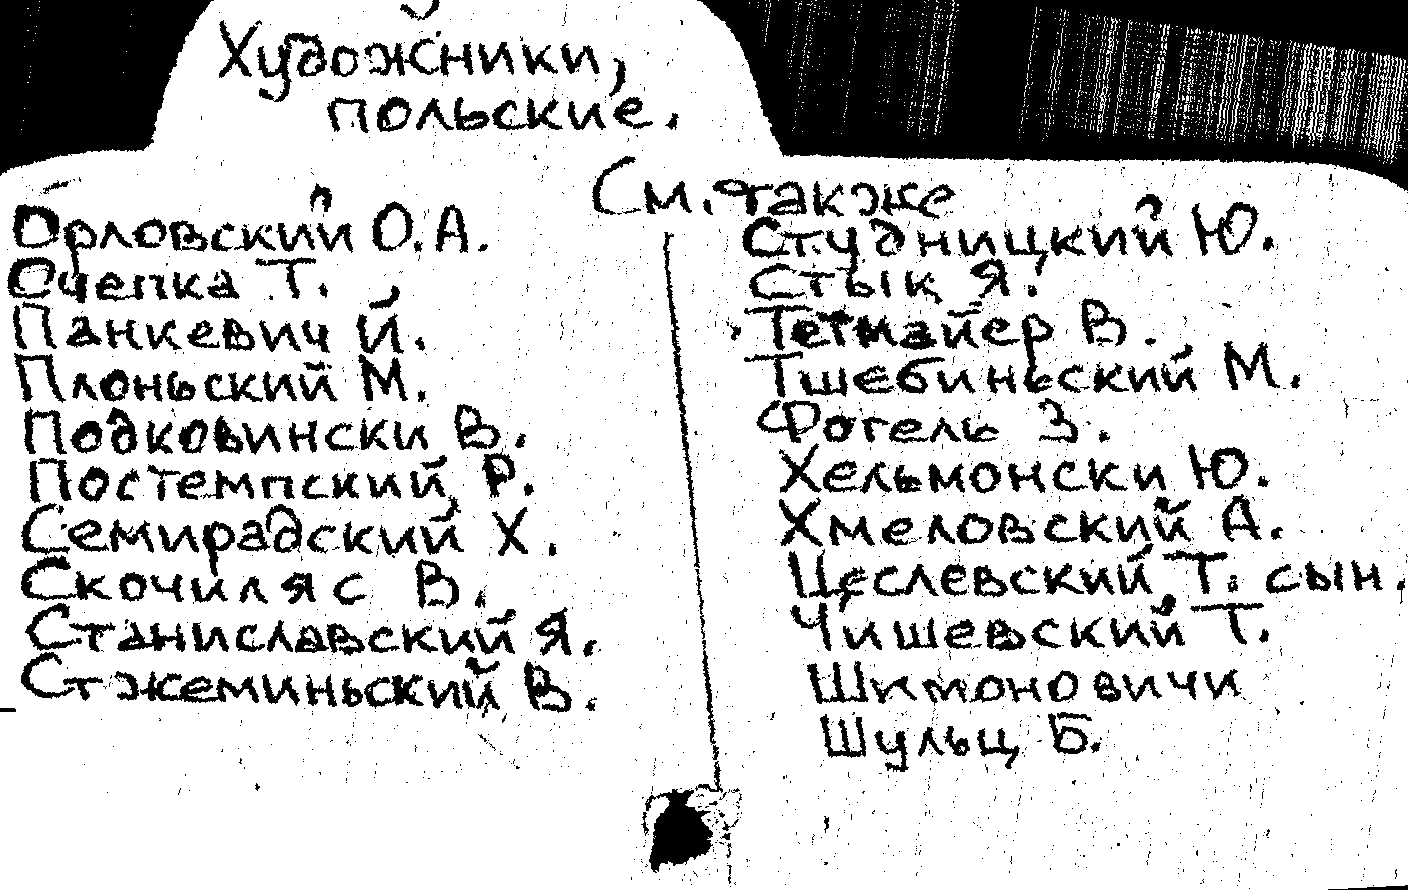 Художники,
польские.
См. также
Орловский О.А.
Очепка Т.
Панкевич Й.
Плоньский М.
Подковински В.
Постемпский, Р.
Семирадский Х.
Скочиляс В.
Станиславский Я.
Стжеминьский В.
Студницкий Ю.
Стык Я.
Тетмайер В.
Тшебиньский М.
Фогель З.
Хельмонски Ю.
Хмеловский А.
Цеслевский, Т. сын.
Чишевский Т.
Шимоновичи
Шульц Б.